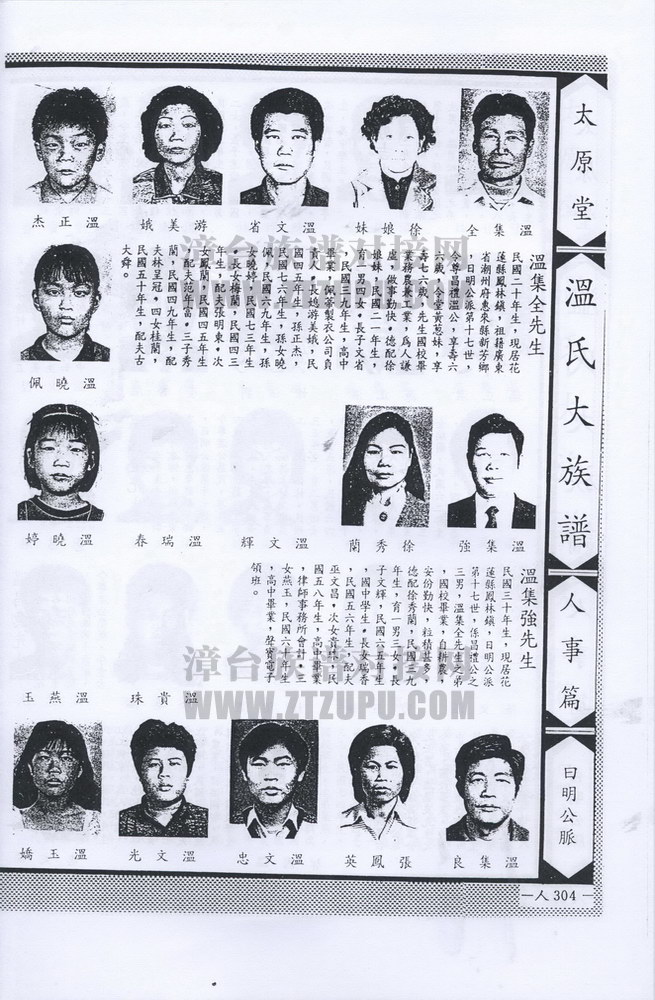 太原堂
溫氏大族譜
人事篇
日明公脈
溫集全
徐娘妹
溫文省
游美娥
溫正杰
溫集全先生
民國二十年生，現居花
蓮縣鳳林鎮，祖籍廣東
省潮州府惠來縣新芳鄉
，日明公派第十七世，
令尊昌禮溫公，享壽六
六歲，令堂黃葱妹，享
壽七六歲，先生國校畢
業務農兼工業，為人謙
虛，做事勤快。德配徐
娘妹，民國二一年生，
育一男四女。長子文省
，民國三九年生，高中
畢業，佩蒂製衣公司負
責人。長媳游美娥，民
國四四年生，孫正杰，
民國七六年生，孫女曉
佩，民國六九年生，孫
女曉婷，民國七三年生
。長女梅蘭，民國四三
年生，配夫張明東。次
女鳳蘭，民國四五年生
，配夫范年富。三子秀
蘭，民國四九年生，配
夫林呈冠。四女桂蘭，
民國五十年生，配夫古
大舜。
溫曉佩
溫集強
徐秀蘭
溫文輝
溫瑞春
溫曉婷
溫集強先生
民國三十年生，現居花
蓮縣鳳林鎮，日明公派
第十七世，係昌禮公之
三男，溫集全先生之弟
，國校畢業，自耕農，
安份勤快，粒積甚多，
德配徐秀蘭，民國三九
年生，育一男三女。長
子文輝，民國六五年生
，國中學生。長女瑞香
，民國五六年生，配夫
巫文昌。次女貴珠，民
國五八年生，高中畢業
，律師事務所會計。三
女燕玉，民國六十年生
，高中畢業，聲寶電子
領班。
溫貴珠
溫燕玉
溫集良
張鳳英
溫文忠
溫文光
溫玉嬌
人304
漳台族谱对接网
漳台族谱对接网
WWW.ZTZUPU.COM